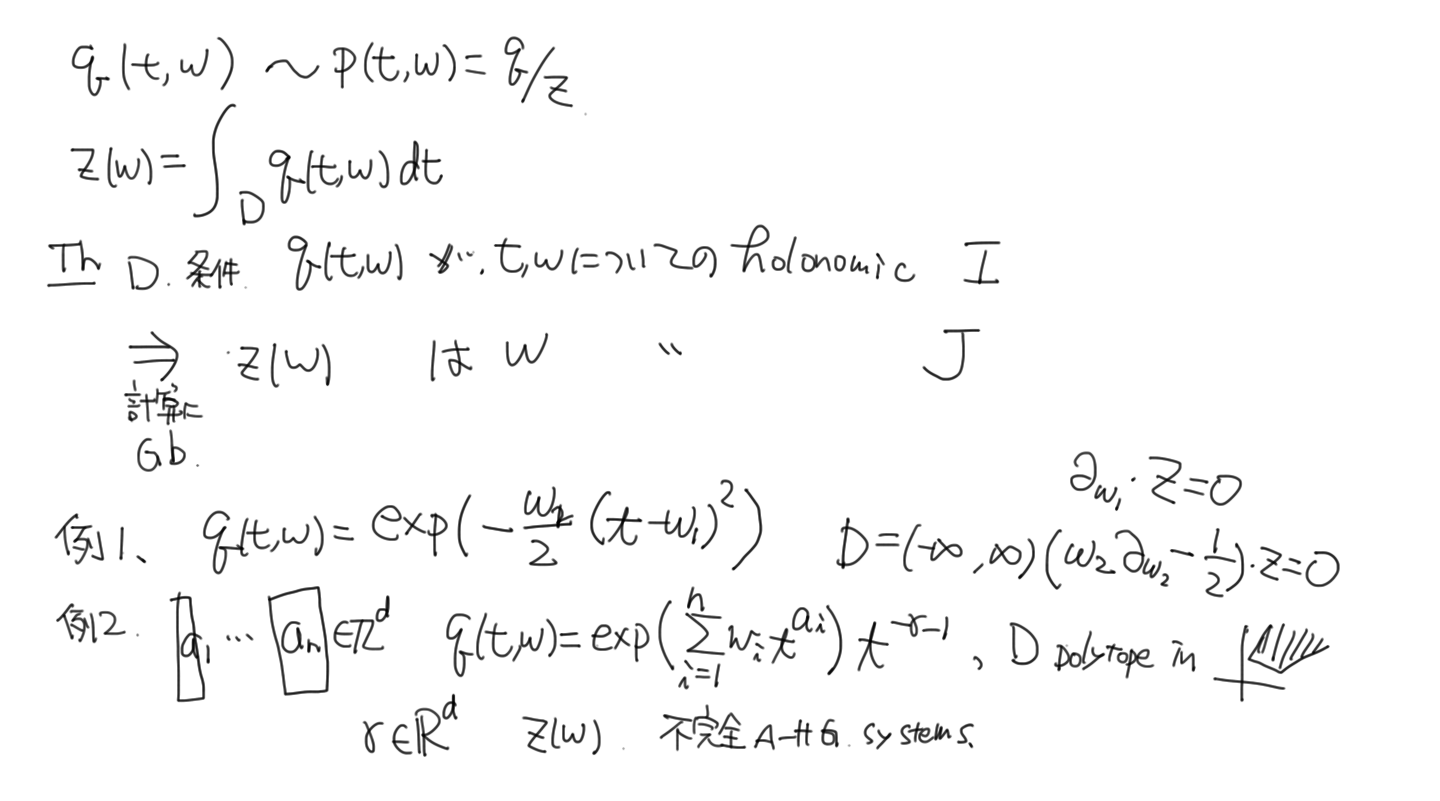 q(t,w) ~ p(t,w) = q/Z
Z(w) = ∫_D q(t,w) dt
Th D. 条件. q(t,w) が、t,w についての holonomic I
⇒ Z(w) は w 〃 J
計算に
Gb.
∂_{w_1}・Z=0
例1、 q(t,w) = exp(-\frac{w_2}{2}(t-w_1)^2) D=(-∞,∞) (w_2∂_{w_2}-\frac{1}{2})・Z=0
例2. a_1 ⋯ a_n ∈ ℤ^d q(t,w) = exp(∑_{i=1}^n w_i t^{a_i}) t^{-γ-1}, D polytope in
γ∈ℝ^d Z(w). 不完全 A-HG. systems.